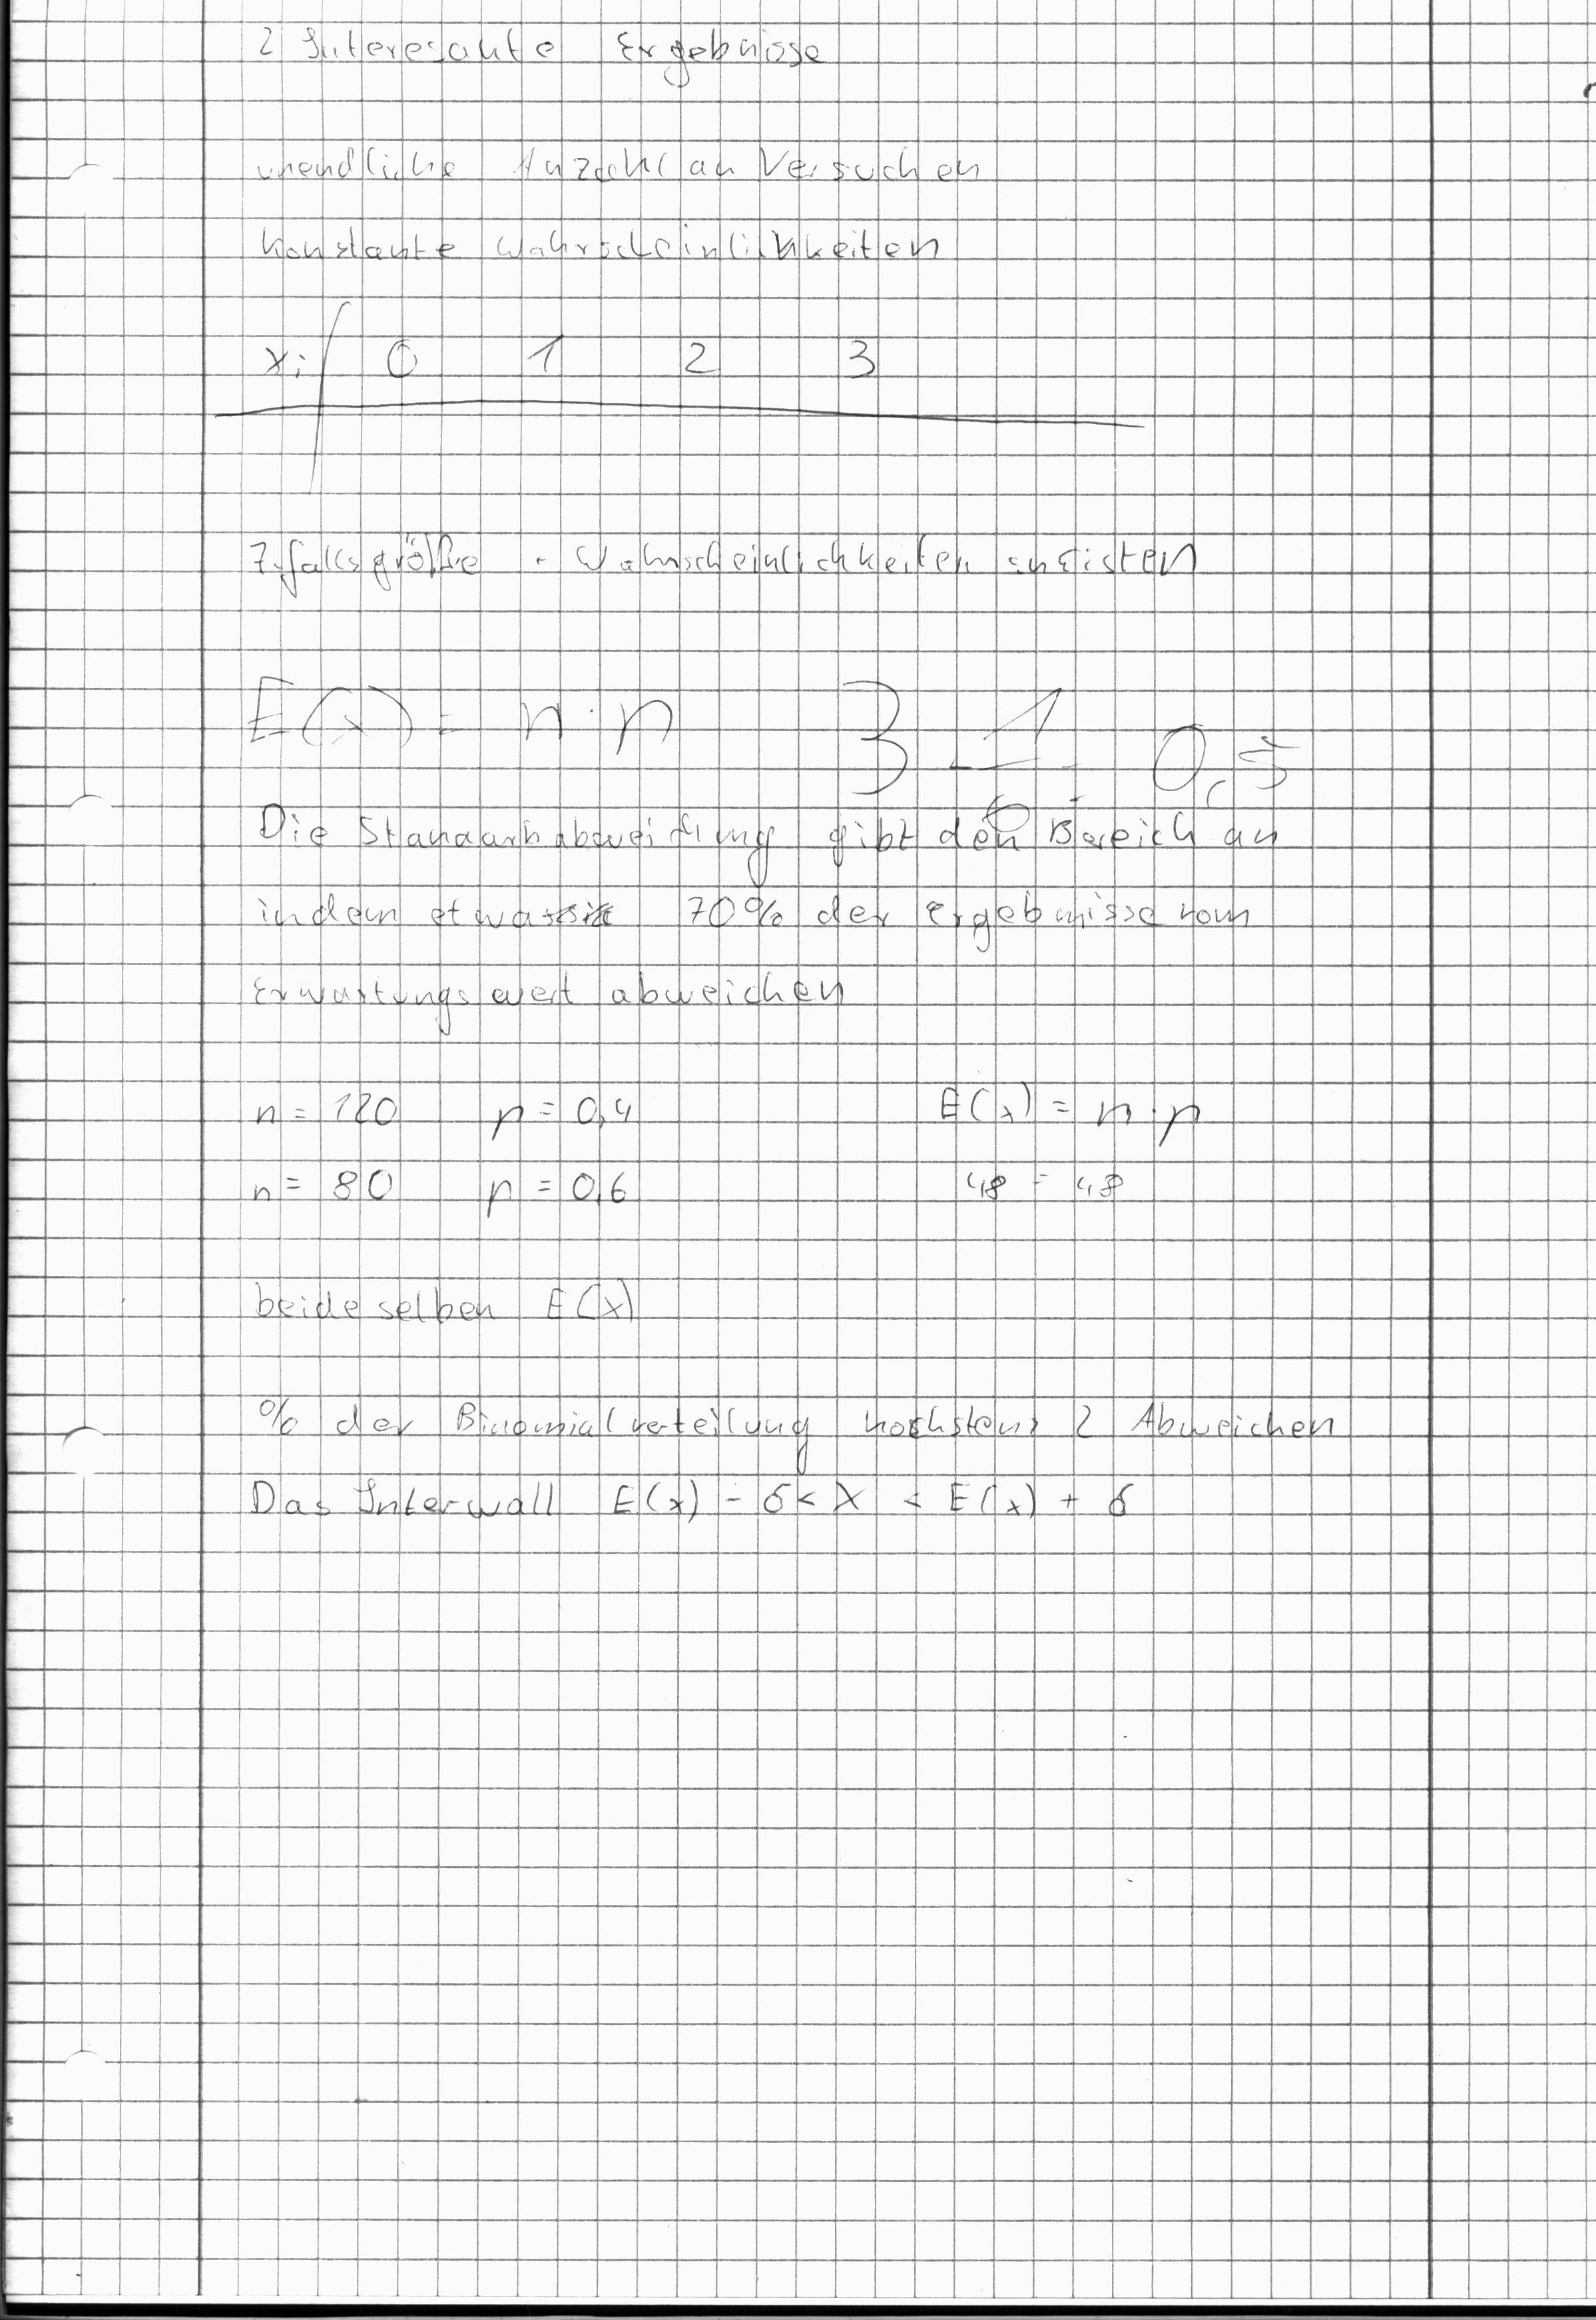 2 Interesante Ergebnisse
unendliche Anzahl an Versuchen
konstante Wahrscheinlichkeiten
xi 0 1 2 3
Zufallsgröße - Wahrscheinlichkeiten
E(x) = n · p 3 · 1/6 = 0,5
Die Standardabweichung gibt den Bereich an
indem etwa 70% der Ergebnisse vom
Erwartungswert abweichen
n = 120 p = 0,4 E(x) = n · p
n = 80 p = 0,6 48 = 48
beide selben E(x)
% der Binomialverteilung höchstens 2 Abweichen
Das Interwall E(x) - σ < X < E(x) + σ